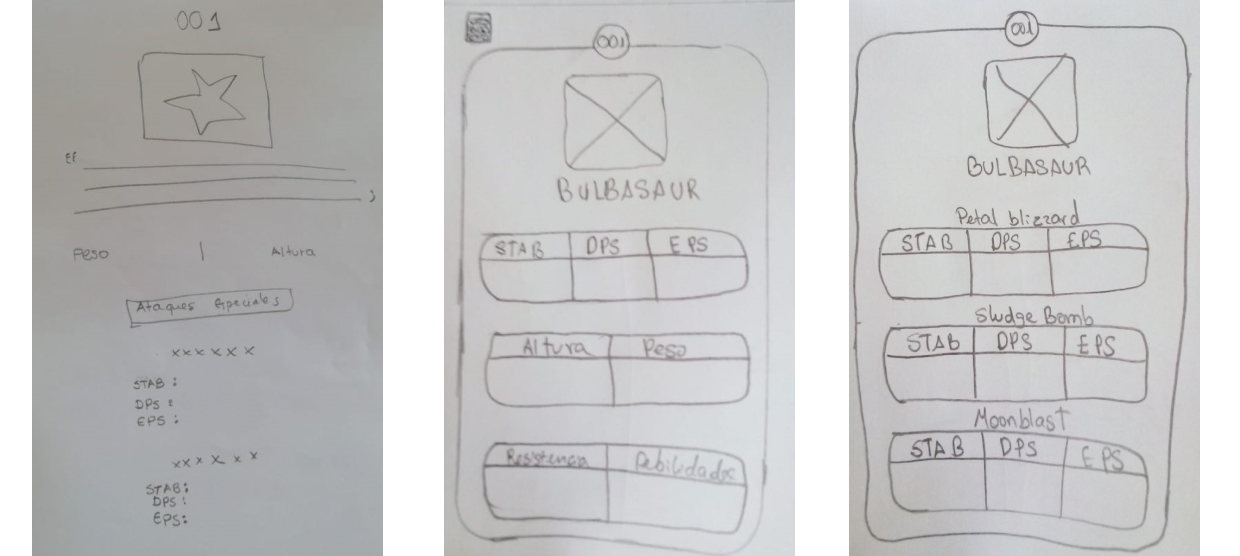 001
“
”
Peso | Altura
Ataques Especiales
xxxxxx
STAB:
DPS:
EPS:
xxxxxx
STAB:
DPS:
EPS:
001
BULBASAUR
STAB DPS EPS
Altura Peso
Resistencia Debilidades
001
BULBASAUR
Petal blizzard
STAB DPS EPS
Sludge Bomb
STAB DPS EPS
Moonblast
STAB DPS EPS